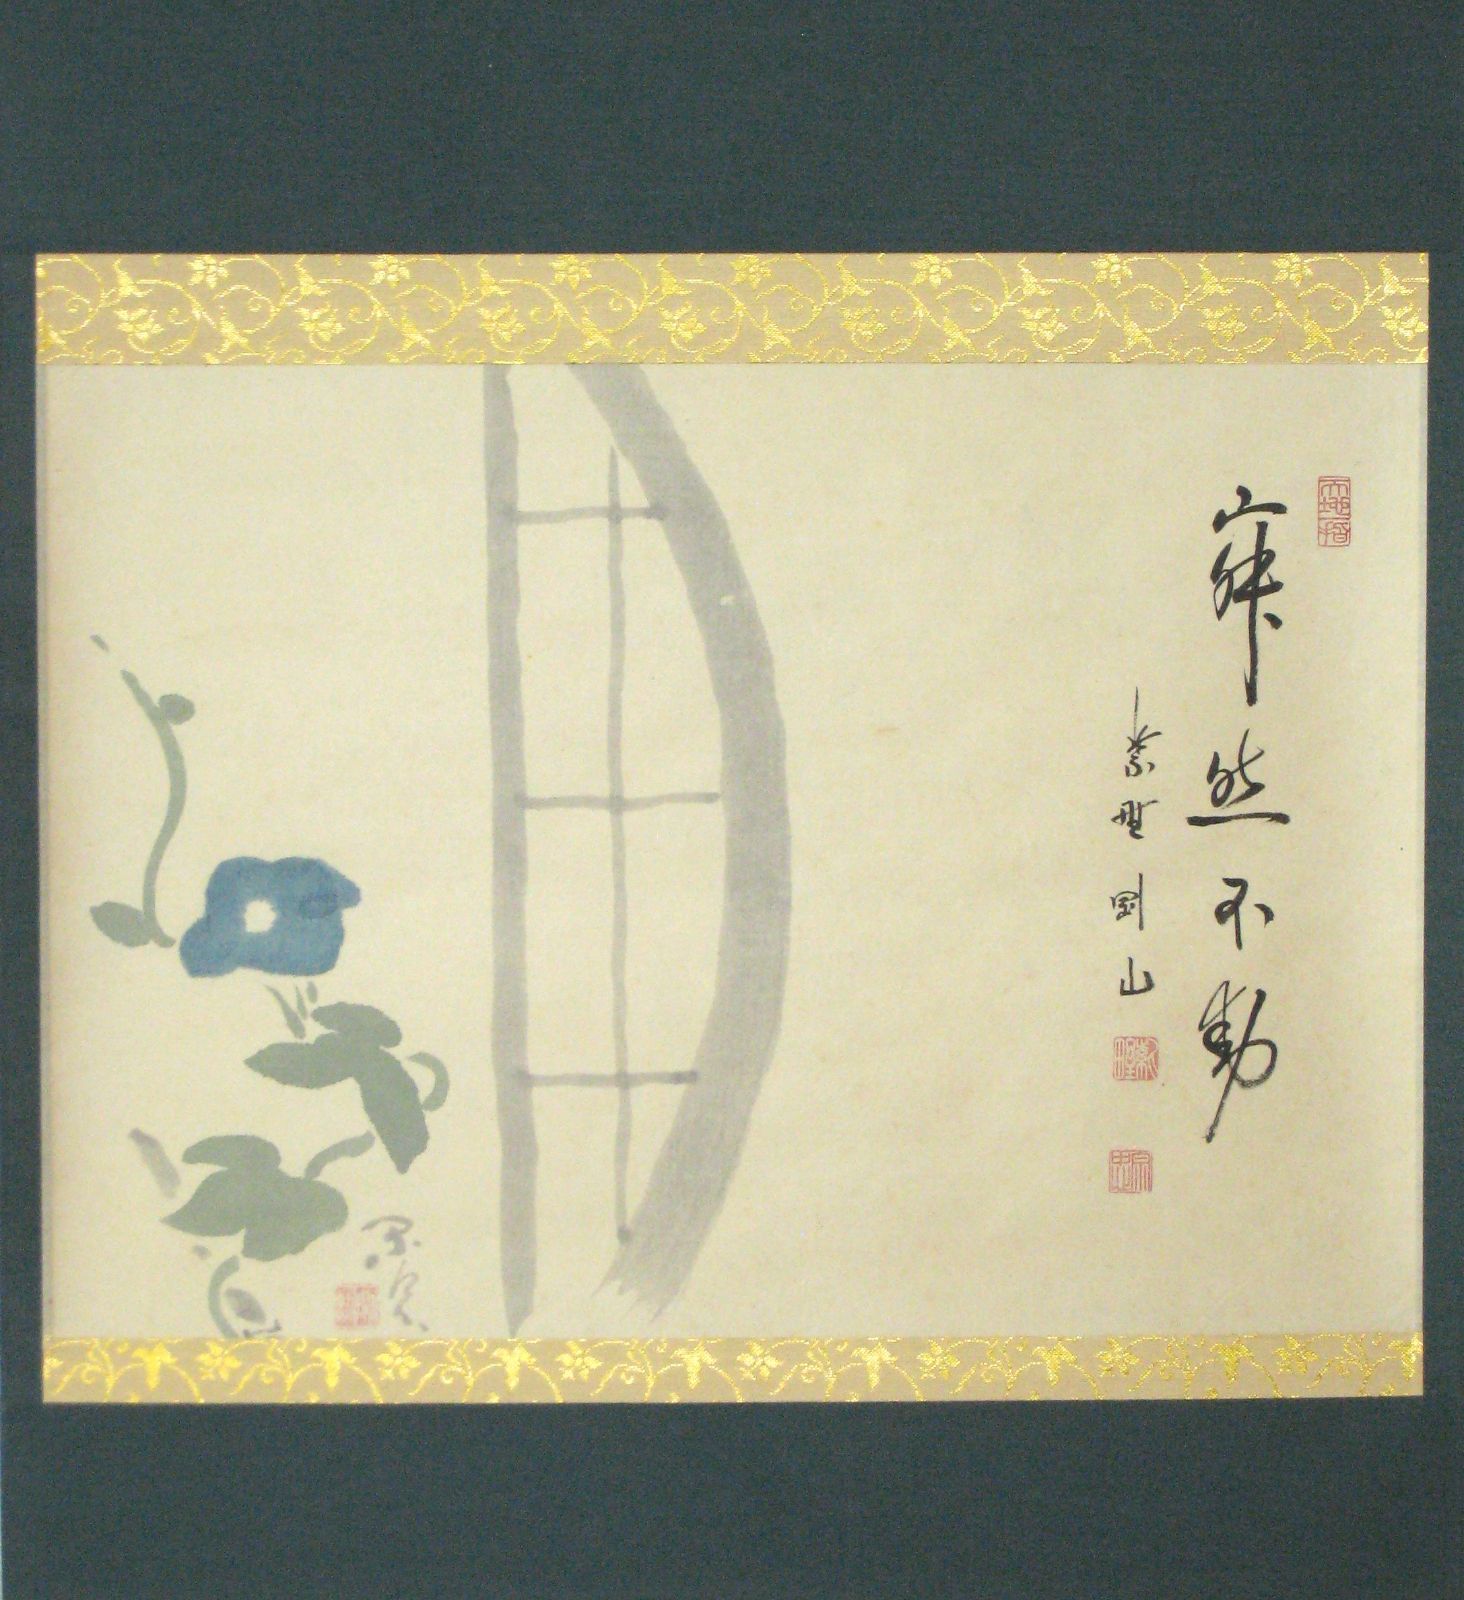 寂然不動
紫野剛山